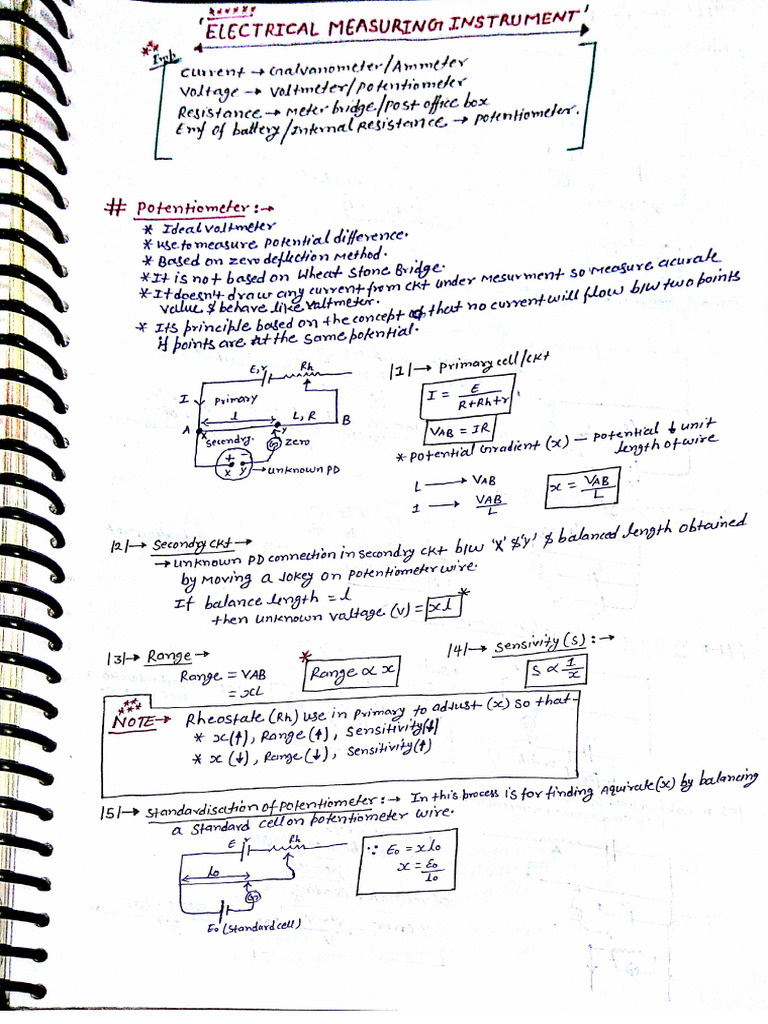 ******
'ELECTRICAL MEASURING INSTRUMENT'
***
Imp
Current → Galvanometer/Ammeter
Voltage → Voltmeter/Potentiometer
Resistance → Meter bridge/Post office box
Emf of battery/Internal Resistance → Potentiometer.
# Potentiometer:→
* Ideal voltmeter
* use to measure Potential difference.
* Based on zero deflection Method.
* It is not based on Wheat Stone Bridge.
* It doesn't draw any current from ckt under Mesurment so measure acurate
value & behave like Valtmeter.
* Its principle based on the concept of that no current will flow b/w two points
if points are at the same potential.
E,r Rh
I Primary
l L, R
A x y B
Secondry. G zero
+ -
x y → unknown PD
|1|→ Primary cell/ckt
I = E / R+Rh+r
VAB = IR
* Potential Gradient (x) — Potential ↓ unit
length of wire
L → VAB
1 → VAB / L
x = VAB / L
|2|→ Secondry ckt →
→ unknown PD connection in secondry ckt b/w 'X' & 'Y' & balanced length obtained
by moving a Jokey on Potentiometer wire.
If balance length = l
then unknown voltage (v) = xl *
|3|→ Range →
Range = VAB
= xL
* Range ∝ x
|4|→ Sensivity (S) :→
S ∝ 1/x
***
***
NOTE→ Rheostate (Rh) use in Primary to adjust (x) so that-
* x(↑), Range (↑), Sensitivity(↓)
* x (↓), Range (↓), Sensitivity(↑)
|5|→ Standardisation of Potentiometer:→ In this process is for finding Aquirate(x) by balancing
a Standard cell on potentiometer wire.
E r Rh
l0
G
E0 (Standard cell)
∵ E0 = xl0
x = E0 / l0